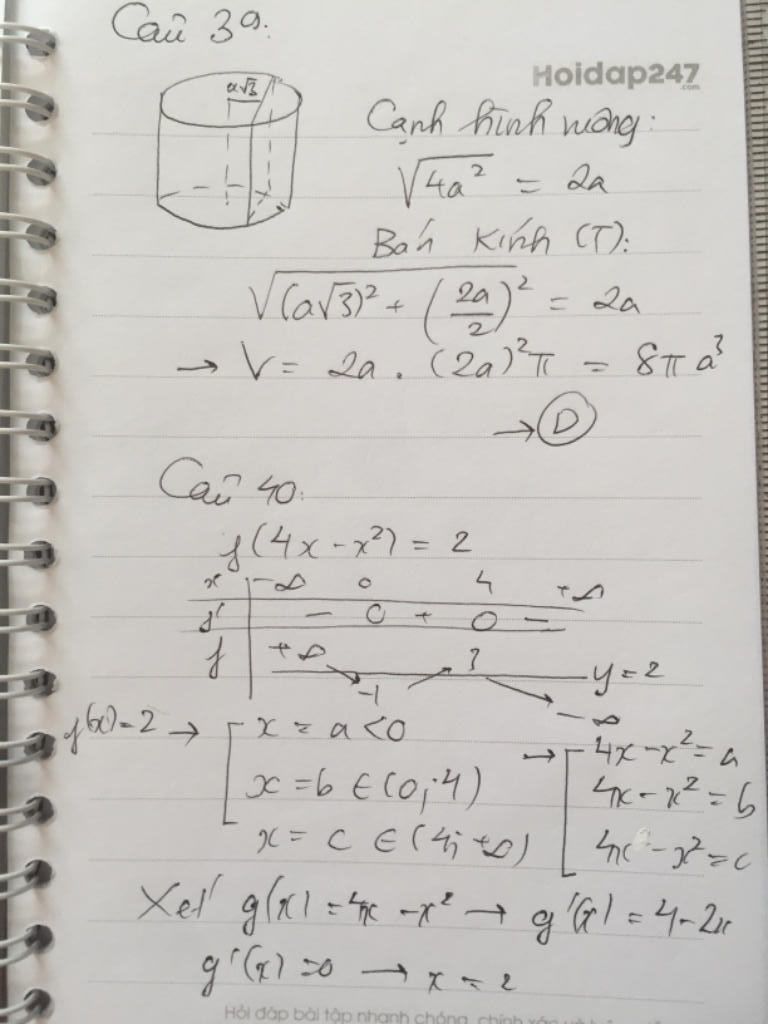 Câu 39:
Hoidap247
.com
a√3
Cạnh hình vuông:
√(4a²) = 2a
Bán kính (T):
√((a√3)² + (2a/2)²) = 2a
→ V = 2a . (2a)²π = 8πa³
→ D
Câu 40:
f(4x - x²) = 2
x -∞ 0 4 +∞
f' - 0 + 0 -
f +∞ -1 3 -∞ y = 2
f(x) = 2 → [ x = a < 0
x = b ∈ (0; 4)
x = c ∈ (4; +∞)
→ [ 4x - x² = a
4x - x² = b
4x - x² = c
Xét g(x) = 4x - x² → g'(x) = 4 - 2x
g'(x) = 0 → x = 2
Hỏi đáp bài tập nhanh chóng, chính xác và